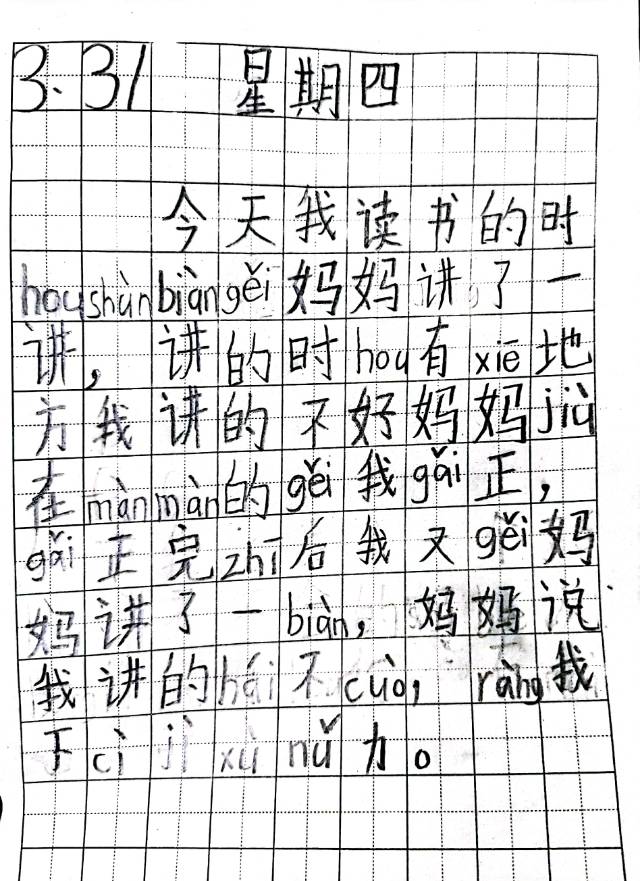 3.31 星期四
今天我读书的时
hou shùn biàn gěi 妈妈讲了一
讲，讲的时 hou 有 xiē 地
方我讲的不好妈妈 jiù
在 màn màn 的 gěi 我 gǎi 正，
gǎi 正完 zhī 后我又 gěi 妈
妈讲了一 biàn，妈妈说
我讲的 hái 不 cuò，ràng 我
下 cì jì xù nǔ 力。